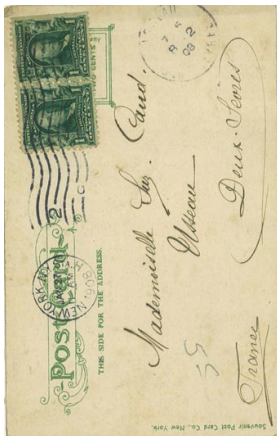 Post Card
THIS SIDE FOR THE ADDRESS.
NEW YORK, N.Y.
1908
2
Mademoiselle Cand.
Usseau
Deux-Sèvres
France
55
Souvenir Post Card Co., New York.